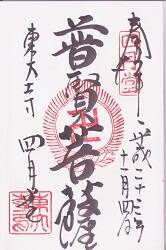 奉拝
平成二十三年
十一月四日
普賢菩薩
東大寺
四月堂